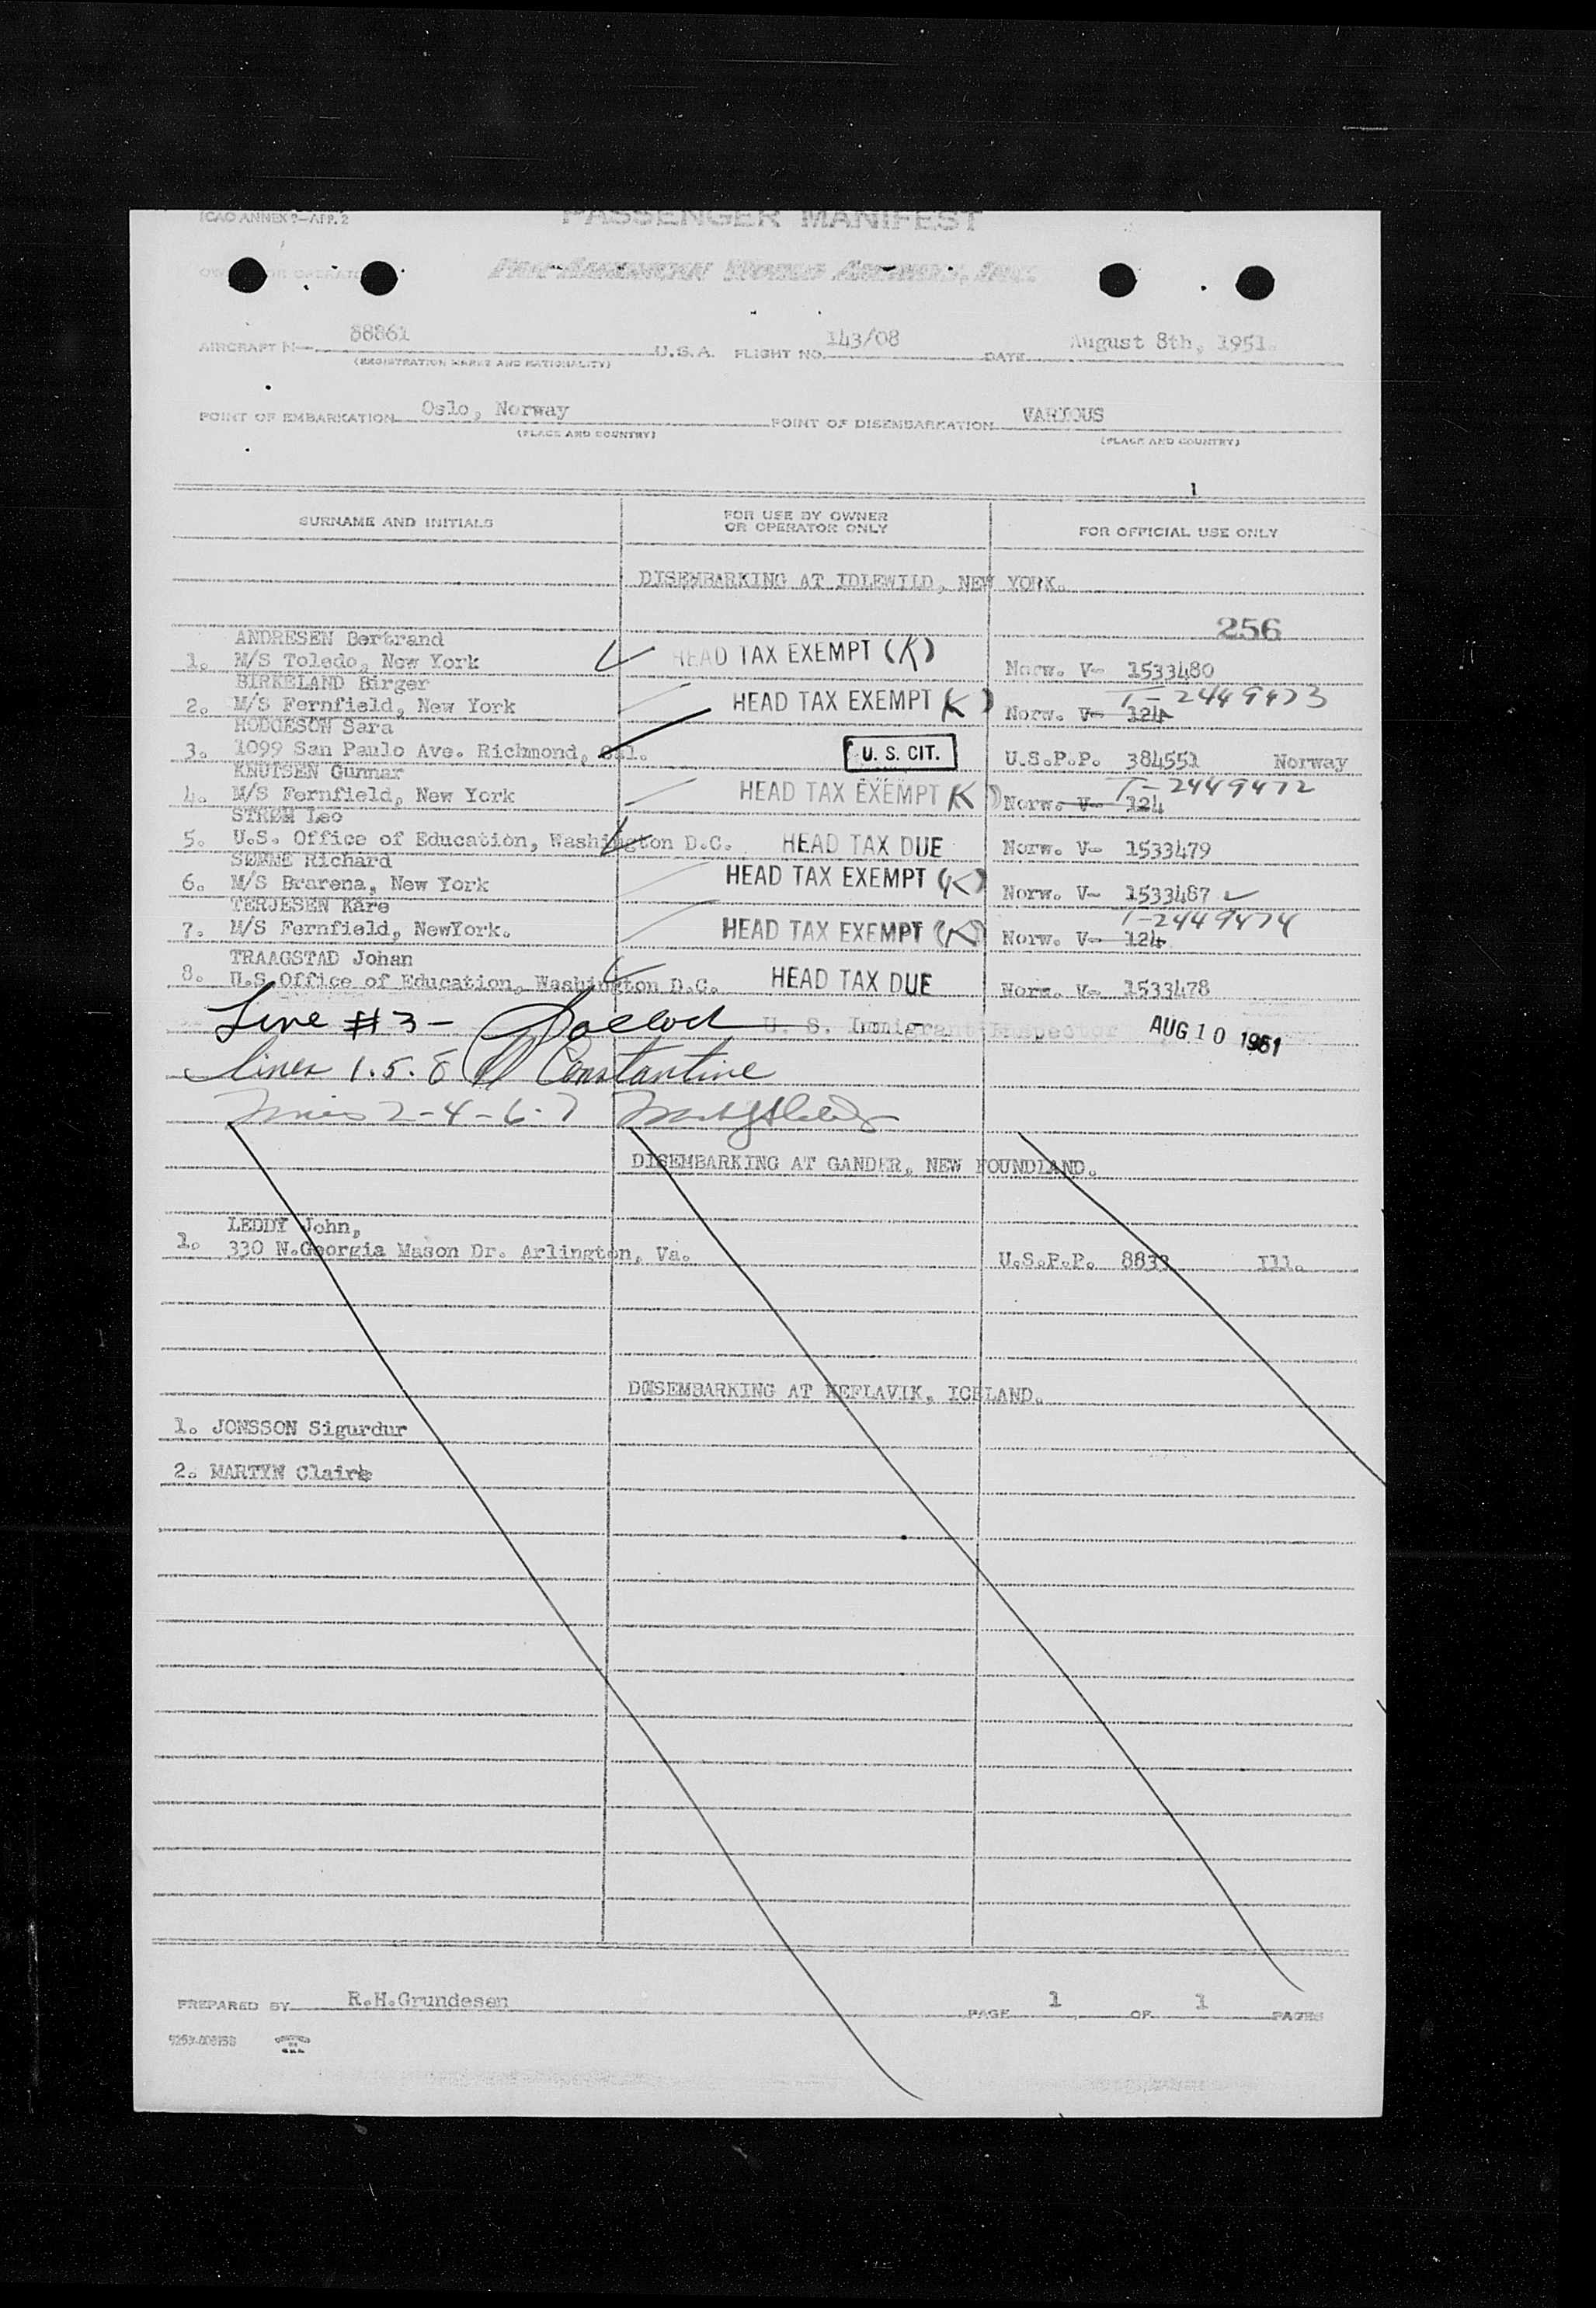 ICAO ANNEX 9—APP. 2
PASSENGER MANIFEST
OWNER OR OPERATOR PAN AMERICAN WORLD AIRWAYS, INC.
AIRCRAFT N— 88861 U.S.A. FLIGHT NO. 143/08 DATE August 8th, 1951.
(REGISTRATION MARKS AND NATIONALITY)
POINT OF EMBARKATION Oslo, Norway POINT OF DISEMBARKATION VARIOUS
(PLACE AND COUNTRY) (PLACE AND COUNTRY)
1
SURNAME AND INITIALS FOR USE BY OWNER OR OPERATOR ONLY FOR OFFICIAL USE ONLY
DISEMBARKING AT IDLEWILD, NEW YORK.
256
ANDRESEN Bertrand
1. M/S Toledo, New York HEAD TAX EXEMPT (K) Norw. V- 1533480
BIRKELAND Birger T-2449473
2. M/S Fernfield, New York HEAD TAX EXEMPT (K) Norw. V- 124
HODGESON Sara
3. 1099 San Paulo Ave. Richmond, Cal. U. S. CIT. U.S.P.P. 384551 Norway
KNUTSEN Gunnar T-2449472
4. M/S Fernfield, New York HEAD TAX EXEMPT (K) Norw. V- 124
STRØM Leo
5. U.S. Office of Education, Washington D.C. HEAD TAX DUE Norw. V- 1533479
SØMME Richard
6. M/S Brarena, New York HEAD TAX EXEMPT (K) Norw. V- 1533487
TERJESEN Kåre T-2449474
7. M/S Fernfield, NewYork. HEAD TAX EXEMPT (K) Norw. V- 124
TRAAGSTAD Johan
8. U.S.Office of Education, Washington D.C. HEAD TAX DUE Norw. V- 1533478
Line #3 - U. S. Immigrant Inspector AUG 10 1951
lines 1.5.8 Constantine
Lines 2-4-6-7
DISEMBARKING AT GANDER, NEW FOUNDLAND.
LEDDY John,
1. 330 N.Georgia Mason Dr. Arlington, Va. U.S.P.P. 8833 Ill.
DISEMBARKING AT KEFLAVIK, ICELAND.
1. JONSSON Sigurdur
2. MARTYN Claire
PREPARED BY R.H.Grundesen PAGE 1 OF 1 PAGES